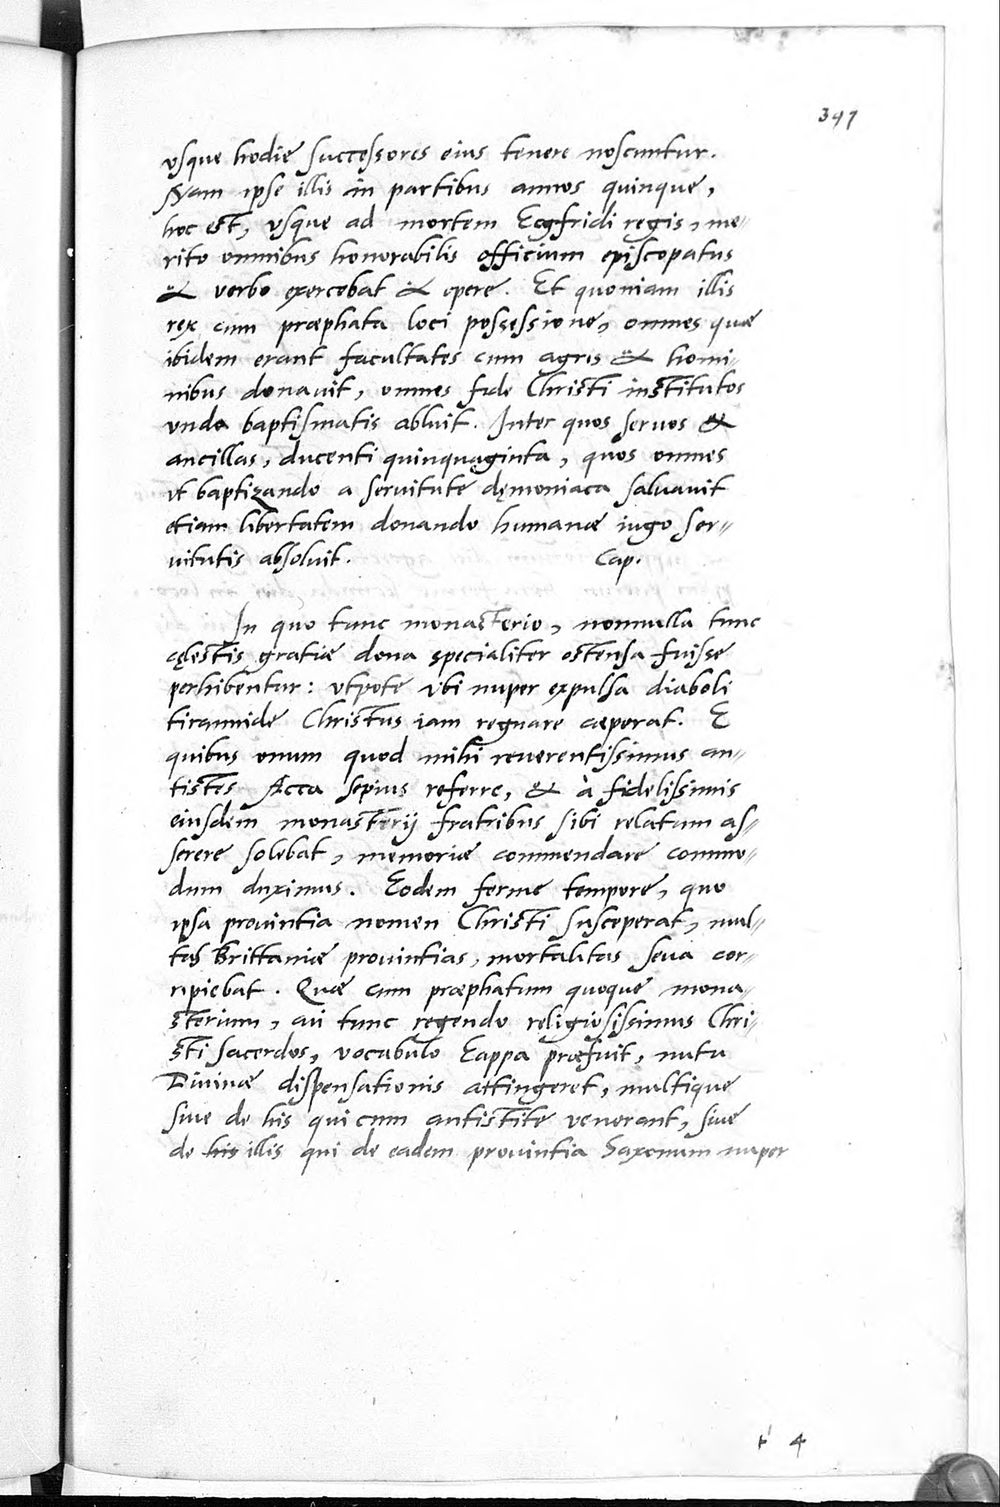 347
vsque hodie successores eius tenere noscuntur.
Nam ipse illis in partibus annos quinque,
hoc est, vsque ad mortem Ecgfridi regis, me-
rito omnibus honorabilis officium episcopatus
& verbo exercebat & opere. Et quoniam illis
rex cum præphata loci possessione, omnes quæ
ibidem erant facultates cum agris & homi-
nibus donauit, omnes fide Christi institutos
vnda baptismatis abluit. Inter quos seruos &
ancillas, ducenti quinquaginta, quos omnes
vt baptizando a seruitute dęmoniaca saluauit
etiam libertatem donando humanæ iugo ser-
uitutis absoluit. Cap.
In quo tunc monasterio, nonnulla tunc
cęlestis gratiæ dona specialiter ostensa fuisse
perhibentur: vtpote vbi nuper expulsa diaboli
tirannide Christus iam regnare cæperat. E
quibus vnum quod mihi reuerentissimus an-
tistes Acca sepius referre, & à fidelissimis
eiusdem monasterij fratribus sibi relatum as-
serere solebat, memoriæ commendare commo-
dum duximus. Eodem ferme tempore, quo
ipsa prouintia nomen Christi susceperat, mul-
tas Brittaniæ prouintias, mortalitas seua cor-
ripiebat. Quæ cum præphatum quoque mona-
sterium, cui tunc regendo religiosissimus Chri-
sti sacerdos, vocabulo Eappa præfuit, nutu
Diuinæ dispensationis attingeret, multique
siue de his qui cum antistite venerant, siue
de his illis qui de eadem prouintia Saxonum nuper
4